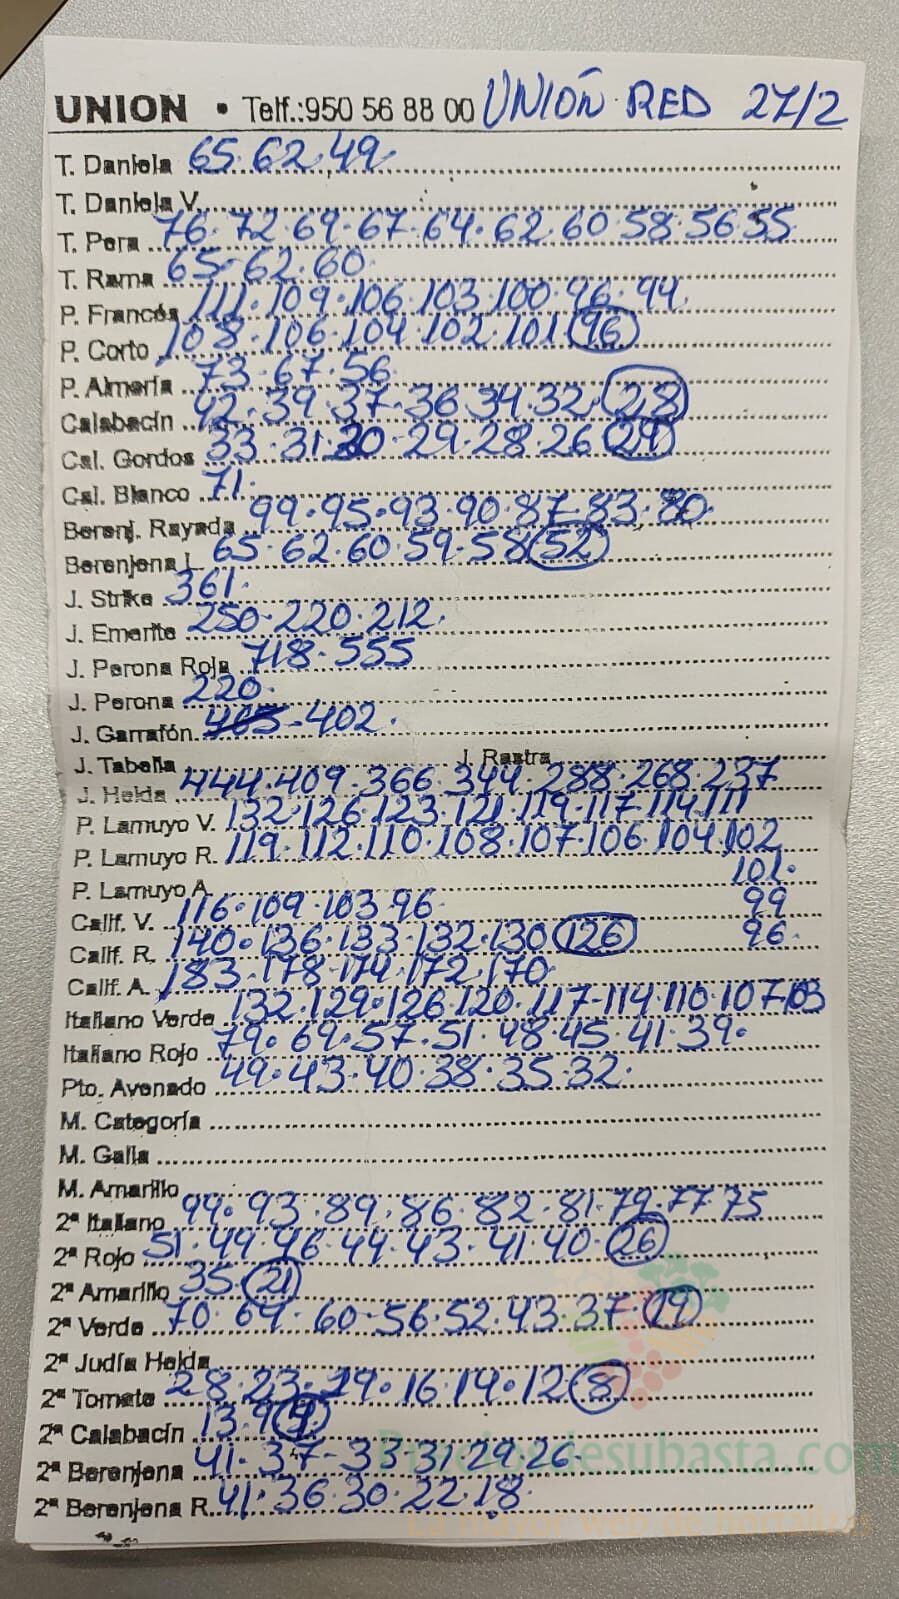 UNION • Telf.:950 56 88 00 UNIÓN RED 27/2
T. Daniela 65·62·49·
T. Daniela V.
T. Pera 76·72·69·67·64·62·60·58·56·55
T. Rama 65·62·60·
P. Francés 111·109·106·103·100·96·94
P. Corto 108·106·104·102·101 96
P. Almería 73·67·56
Calabacín 42·39·37·36·34·32· 28
Cal. Gordos 33·31·30·29·28·26
Cal. Blanco 71·
Berenj. Rayada 99·95·93·90·87·83·80·
Berenjena L 65·62·60·59·58 52
J. Strike 361·
J. Emerite 250·220·212·
J. Perona Roja 718·555
J. Perona 220·
J. Garrafón 465-402·
J. Tabella J. Rastra
J. Helda 444·409·366·344·288·268·237
P. Lamuyo V. 132·126·123·121·119·117·114·111
P. Lamuyo R. 119·112·110·108·107·106·104·102
101·
P. Lamuyo A.
99
Calif. V. 116·109·103·96·
96·
Calif. R. 140·136·133·132·130 126
Calif. A. 183·178·174·172·170
Italiano Verde 132·129·126·120·117·114·110·107·103
Italiano Rojo 79·69·57·51·48·45·41·39·
Pto. Avenado 49·43·40·38·35·32·
M. Categoría
M. Galia
M. Amarillo
2ª Italiano 99·93·89·86·82·81·79·77·75
2ª Rojo 51·49·46·44·43·41·40· 26
2ª Amarillo 35· 21
2ª Verde 70·64·60·56·52·43·37· 19
2ª Judía Helda
2ª Tomate 28·23·19·16·14·12 8
2ª Calabacín 13·9
2ª Berenjena 41·37·33·31·29·26·
2ª Berenjena R. 41·36·30·22·18·
Preciosdesubasta.com
La mayor web de hortalizas